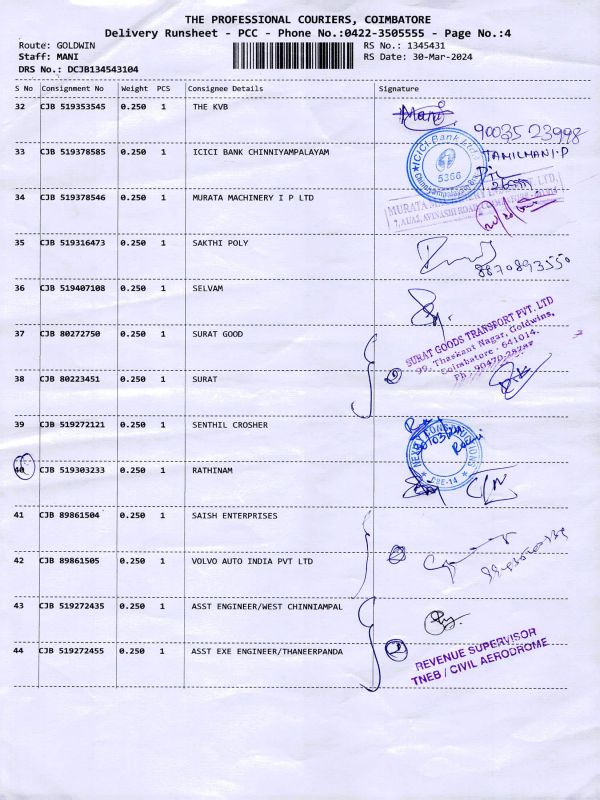 THE PROFESSIONAL COURIERS, COIMBATORE
Delivery Runsheet - PCC - Phone No.:0422-3505555 - Page No.:4
Route: GOLDWIN RS No.: 1345431
Staff: MANI RS Date: 30-Mar-2024
DRS No.: DCJB134543104
S No Consignment No Weight PCS Consignee Details Signature
32 CJB 519353545 0.250 1 THE KVB
Mani
9003523998
33 CJB 519378585 0.250 1 ICICI BANK CHINNIYAMPALAYAM
ICICI Bank
5366
Chinniyampalayam
TAMILMANI.P
34 CJB 519378546 0.250 1 MURATA MACHINERY I P LTD
35 CJB 519316473 0.250 1 SAKTHI POLY
8870893550
36 CJB 519407108 0.250 1 SELVAM
37 CJB 80272750 0.250 1 SURAT GOOD
SURAT GOODS TRANSPORT PVT. LTD
99, Thaskant Nagar, Goldwins,
Coimbatore - 641014.
38 CJB 80223451 0.250 1 SURAT
39 CJB 519272121 0.250 1 SENTHIL CROSHER
40 CJB 519303233 0.250 1 RATHINAM
CBE-14
41 CJB 89861504 0.250 1 SAISH ENTERPRISES
42 CJB 89861505 0.250 1 VOLVO AUTO INDIA PVT LTD
43 CJB 519272435 0.250 1 ASST ENGINEER/WEST CHINNIAMPAL
44 CJB 519272455 0.250 1 ASST EXE ENGINEER/THANEERPANDA
REVENUE SUPERVISOR
TNEB / CIVIL AERODROME